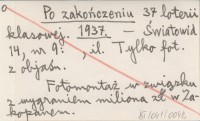 Po zakończeniu 37 loterii
klasowej. 1937. — Światowid
14, nr 9?, il. Tylko fot.
z objaśn.
Fotomontaż w związku
z wygraniem miliona zł w Za-
kopanem.